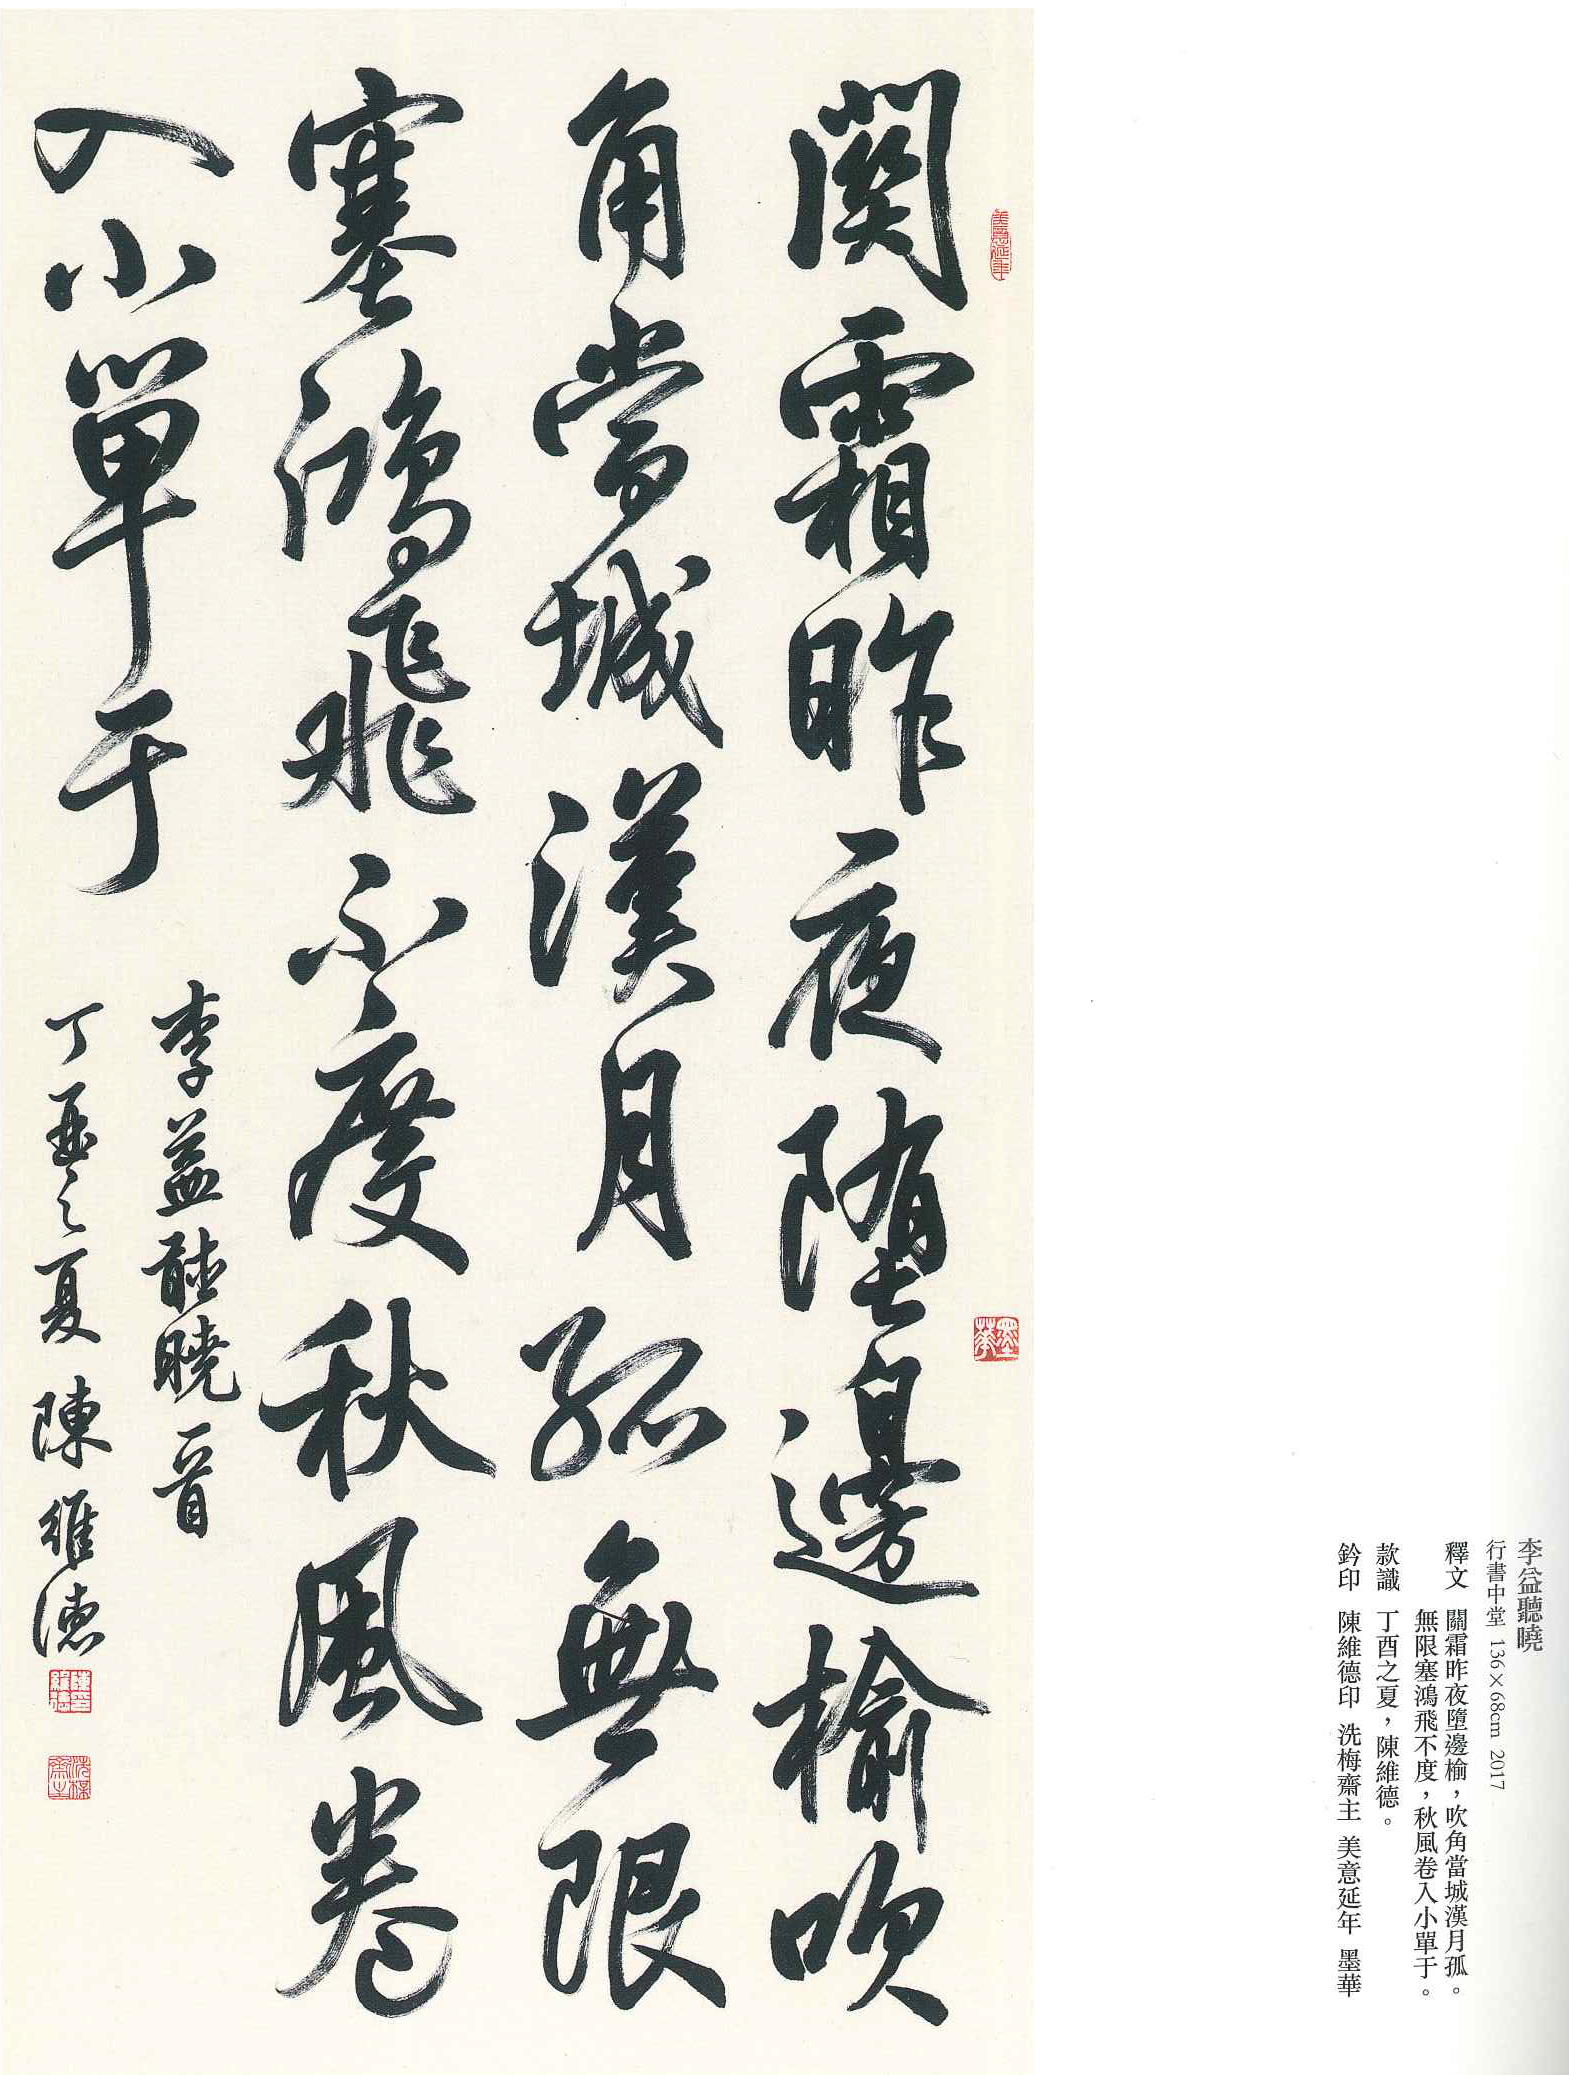 美意延年
墨華
關霜昨夜堕邊榆吹
角當城漢月孤無限
塞鴻飛不度秋風卷
入小單于
李益聽曉一首
丁酉之夏陳維德
陳維德印
洗梅齋主
李益聽曉
行書中堂 136×68cm 2017
釋文 關霜昨夜墮邊榆，吹角當城漢月孤。
無限塞鴻飛不度，秋風卷入小單于。
款識 丁酉之夏，陳維德。
鈐印 陳維德印 洗梅齋主 美意延年 墨華